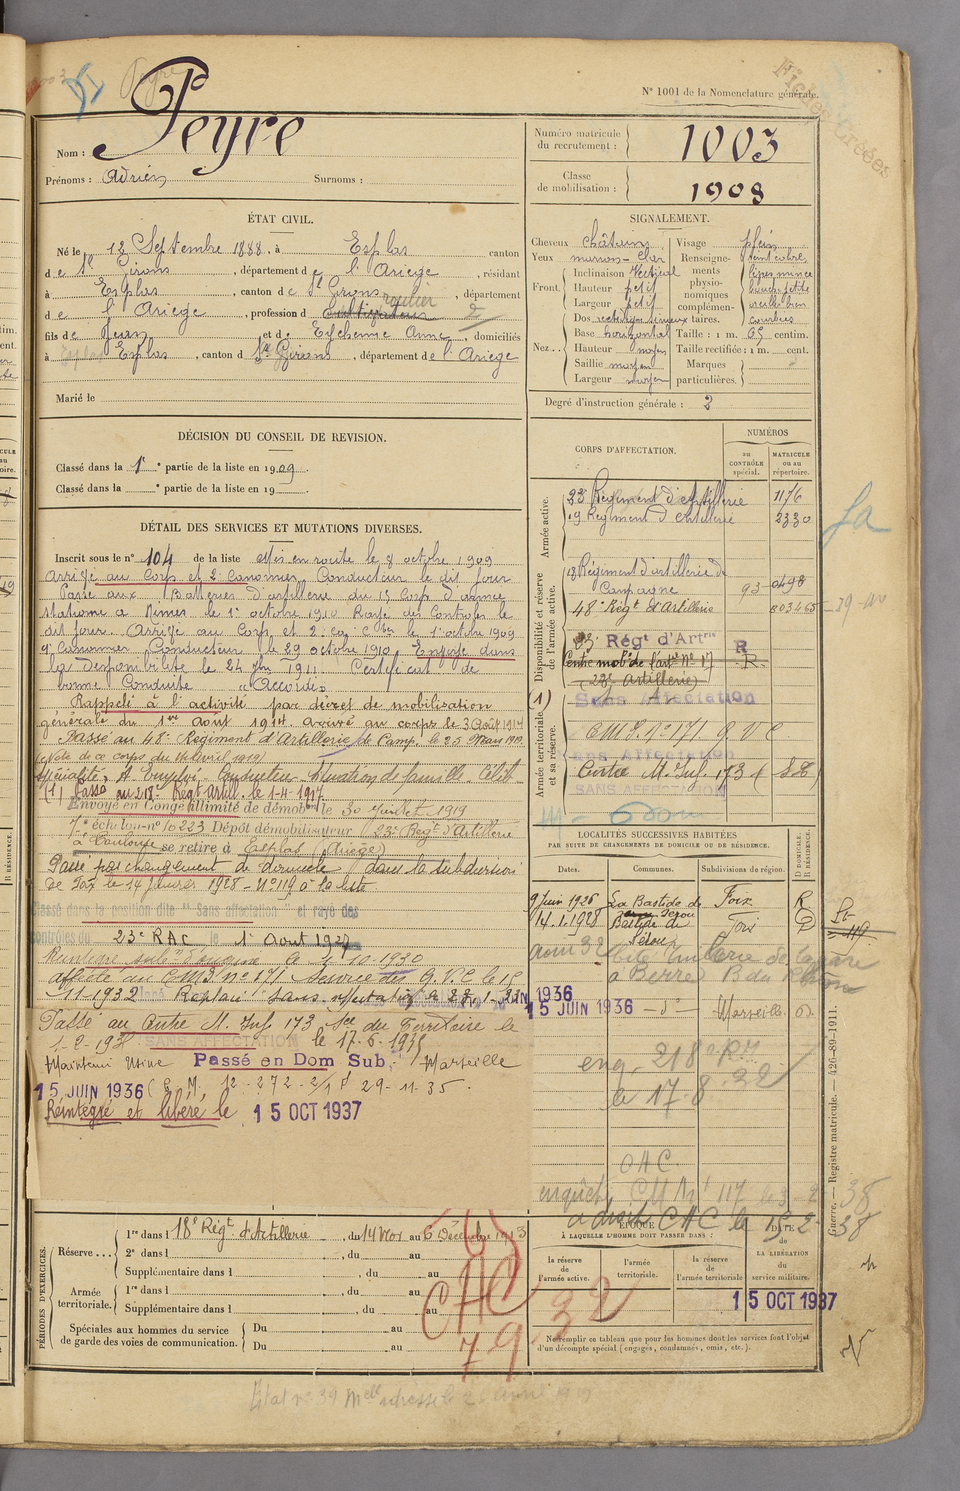 N° 1001 de la Nomenclature générale.
Peyre
Nom : Peyre
Prénoms : Adrien Surnoms :
Numéro matricule du recrutement : 1003
Classe de mobilisation : 1908
ÉTAT CIVIL.
Né le 12 Septembre 1888, à Esplas canton
de St Girons, département de l'Ariège, résidant
à Esplas, canton de St Girons, département
de l'Ariège, profession de cultivateur routier
fils de Jean et de Eychenne Anne, domiciliés
à Esplas, canton de St Girons, département de l'Ariège
Marié le
SIGNALEMENT.
Cheveux châtains
Yeux marron-clair
Front. Inclinaison Vertical
Hauteur petit
Largeur petit
Nez.. Dos rectiligne sinueux
Base horizontal
Hauteur moyen
Saillie moyen
Largeur moyen
Visage plein
Renseignements physionomiques complémentaires.
lèpres mince
bouche petite
Taille : 1 m. 65 centim.
Taille rectifiée : 1 m. cent.
Marques particulières.
Degré d'instruction générale : 2
DÉCISION DU CONSEIL DE REVISION.
Classé dans la 1e partie de la liste en 1909.
Classé dans la e partie de la liste en 19
DÉTAIL DES SERVICES ET MUTATIONS DIVERSES.
Inscrit sous le n° 104 de la liste Mis en route le 8 octobre 1909
Arrivé au Corps et 2e Canonnier Conducteur le dit jour
Passé aux Batteries d'artillerie du 15 Corps d'armée
stationné à Nimes le 1er octobre 1910 Rayé des Contrôles le
dit jour. Arrivé au Corps et 2e le 1er octobre 1909
Canonnier Conducteur le 29 octobre 1910. Envoyé dans
la disponibilité le 24 1911 Certificat de
bonne Conduite "Accordé"
Rappelé à l'activité par décret de mobilisation
générale du 1er août 1914 arrivé au corps le 3 Août 1914
Passé au 48e Régiment d'Artillerie de Camp. le 25 Mars 1919
(Note de ce corps du 14 avril 1919)
Spécialité, A. Emploi, Conducteur. Situation de famille. Célib.
(1) Passé au 218e Regt Artill. le 1-4-1917
Envoyé en Congé illimité de démob. le 30 Juillet 1919
7e échelon n° 10223 Dépôt démobilisateur 23e Régt d'Artillerie
à Toulouse se retire à Esplas (Ariège)
Passé par changement de domicile dans la subdivision
de Foix le 14 Janvier 1928 - N° 119 à la liste
Classé dans la position dite "Sans affectation" et rayé des
contrôles du 23e RAC le 1er Aout 1927
le 4-10-1930
affecté au CM3 N° 171 Service G.V.C le 15
-11-1932 Replacé Sans affectation le 28-1-
Passé au Centre M. Inf. 173 Sce du Territoire le
SANS AFFECTATION le 17-6-1935
Maintenu Usine Passé en Dom Sub. Marseille
15 JUIN 1936 (C. M. 12-272-2/1 d 29-11-35.
Réintégré et libéré le 15 OCT 1937
CORPS D'AFFECTATION.
NUMÉROS
au CONTRÔLE spécial.
MATRICULE ou au répertoire.
Armée active.
23e Régiment d'Artillerie 1176
19 Régiment d'Artillerie 2330
Disponibilité et réserve de l'armée active.
18 Régiment d'artillerie de Campagne 93 0498
48e Régt d'Artillerie
23e Régt d'Artie R
Centre mobre de l'artie N° 17 R
(23e Artillerie)
Armée territoriale et sa réserve.
(1) Sans Affectation
CM3 N° 171 G V C
Sans Affectation
Centre M. Inf. 173
SANS AFFECTATION
LOCALITÉS SUCCESSIVES HABITÉES
PAR SUITE DE CHANGEMENTS DE DOMICILE OU DE RÉSIDENCE.
Dates. Communes. Subdivisions de région. D DOMICILE. R RÉSIDENCE.
9 Juin 1926 La Bastide de Sérou Foix R
14.1.1928 Bastide de Sérou Foix D
aout 32
à Berre B du Rhône
15 JUIN 1936 - d° - Marseille d.
eng. 218e RM
le 17-8-32
OHC
enquête CM N° 117
à droit CHC le 15 2-38
ÉPOQUE
À LAQUELLE L'HOMME DOIT PASSER DANS :
la réserve de l'armée active.
l'armée territoriale.
la réserve de l'armée territoriale
DATE de LA LIBÉRATION du service militaire.
15 OCT 1937
Ne remplir ce tableau que pour les hommes dont les services font l'objet
d'un décompte spécial (engagés, condamnés, omis, etc.).
PÉRIODES D'EXERCICES.
Réserve... 1re dans l 18e Régt d'Artillerie, du 14 Nov au 6 Décembre 1913
2e dans l , du au
Supplémentaire dans l , du au
Armée territoriale. 1re dans l , du au
Supplémentaire dans l , du au
Spéciales aux hommes du service de garde des voies de communication. Du au
Du au
CHC
79
32
Guerre. — Registre matricule. — 426-89-1911.